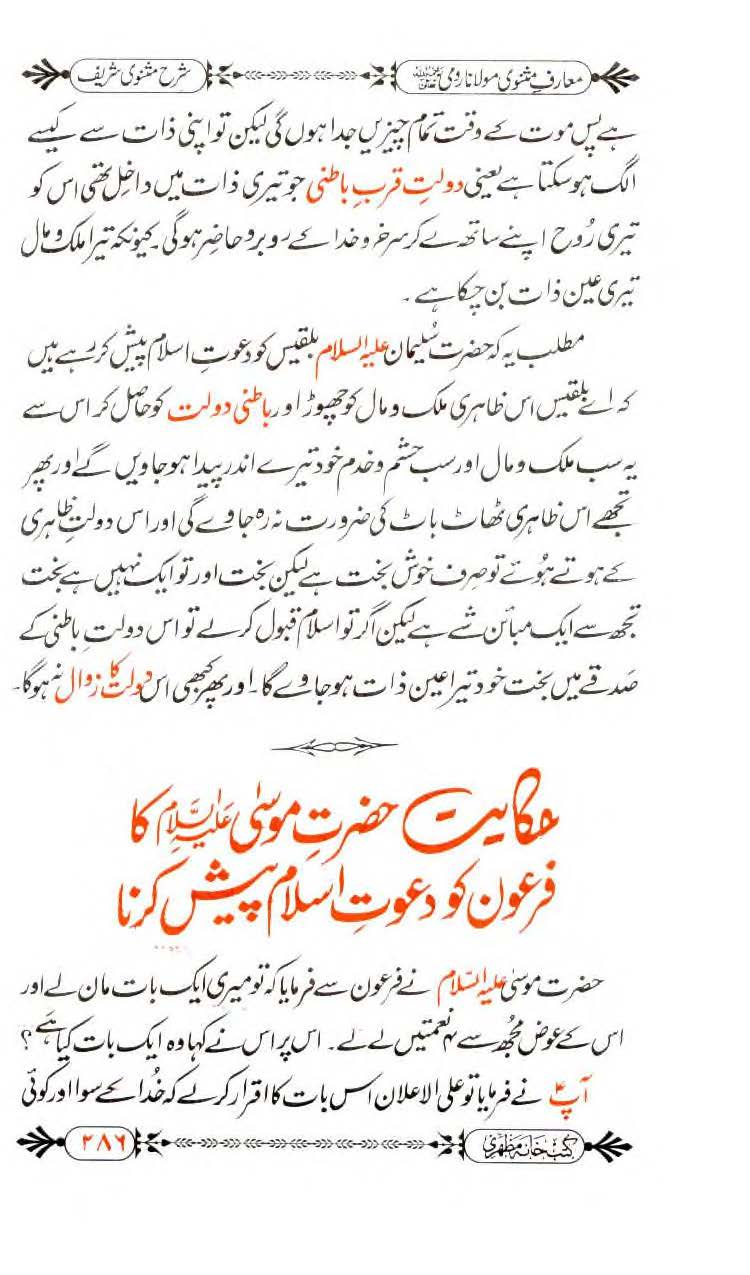 معارفِ مثنوی مولانا رومی شرح مثنوی شریف
ہے پس موت کے وقت تمام چیزیں جدا ہوں گی لیکن تو اپنی ذات سے کیسے
الگ ہوسکتا ہے یعنی دولتِ قربِ باطنی جو تیری ذات میں داخل تھی اس کو
تیری رُوح اپنے ساتھ لے کر سرخرو خدا کے روبرو حاضر ہوگی۔ کیونکہ تیرا ملک و مال
تیری عین ذات بن چکا ہے۔
مطلب یہ کہ حضرت سُلیمان علیہ السلام بلقیس کو دعوتِ اسلام پیش کر رہے ہیں
کہ اے بلقیس اس ظاہری ملک و مال کو چھوڑ اور باطنی دولت کو حاصل کر اس سے
یہ سب ملک و مال اور سب حشم و خدم خود تیرے اندر پیدا ہوجاویں گے اور پھر
تجھے اس ظاہری ٹھاٹ باٹ کی ضرورت نہ رہ جاوے گی اور اس دولتِ ظاہری
کے ہوتے ہُوئے تو صِرف خوش بخت ہے لیکن بخت اور تو ایک نہیں ہے بخت
تجھ سے ایک مبائن شے ہے لیکن اگر تو اسلام قبول کرلے تو اس دولتِ باطنی کے
صَدقے میں بخت خود تیرا عین ذات ہوجاوے گا۔ اور پھر کبھی اس دولت کا زوال نہ ہوگا۔
حکایت حضرتِ موسیٰ عَلَیْہِ السَّلَام کا
فرعون کو دعوتِ اسلام پیش کرنا
حضرت موسیٰ علیہ السّلام نے فرعون سے فرمایا کہ تو میری ایک بات مان لے اور
اس کے عوض مُجھ سے ۴ نعمتیں لے لے۔ اس پر اس نے کہا وہ ایک بات کیا ہَے؟
آپؑ نے فرمایا تو علی الاعلان اس بات کا اقرار کرلے کہ خُدا کے سوا اور کوئی
کتب خانہ مظہری ۲۸۶